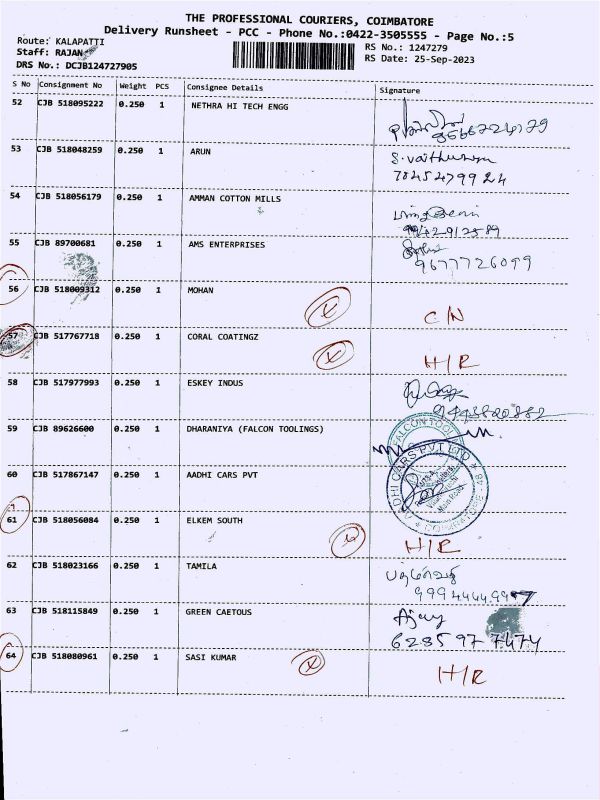 THE PROFESSIONAL COURIERS, COIMBATORE
Delivery Runsheet - PCC - Phone No.:0422-3505555 - Page No.:5
Route: KALAPATTI
RS No.: 1247279
Staff: RAJAN
RS Date: 25-Sep-2023
DRS No.: DCJB124727905
S No Consignment No Weight PCS Consignee Details Signature
52 CJB 518095222 0.250 1 NETHRA HI TECH ENGG
53 CJB 518048259 0.250 1 ARUN
7845479924
54 CJB 518056179 0.250 1 AMMAN COTTON MILLS
55 CJB 89700681 0.250 1 AMS ENTERPRISES
9677726099
56 CJB 518009312 0.250 1 MOHAN C/N
57 CJB 517767718 0.250 1 CORAL COATINGZ H/R
58 CJB 517977993 0.250 1 ESKEY INDUS
59 CJB 89626600 0.250 1 DHARANIYA (FALCON TOOLINGS)
FALCON TOOL
60 CJB 517867147 0.250 1 AADHI CARS PVT
AADHI CARS PVT LTD
COIMBATORE
61 CJB 518056084 0.250 1 ELKEM SOUTH H/R
62 CJB 518023166 0.250 1 TAMILA
63 CJB 518115849 0.250 1 GREEN CAETOUS Ajay
6285977474
64 CJB 518080961 0.250 1 SASI KUMAR H/R